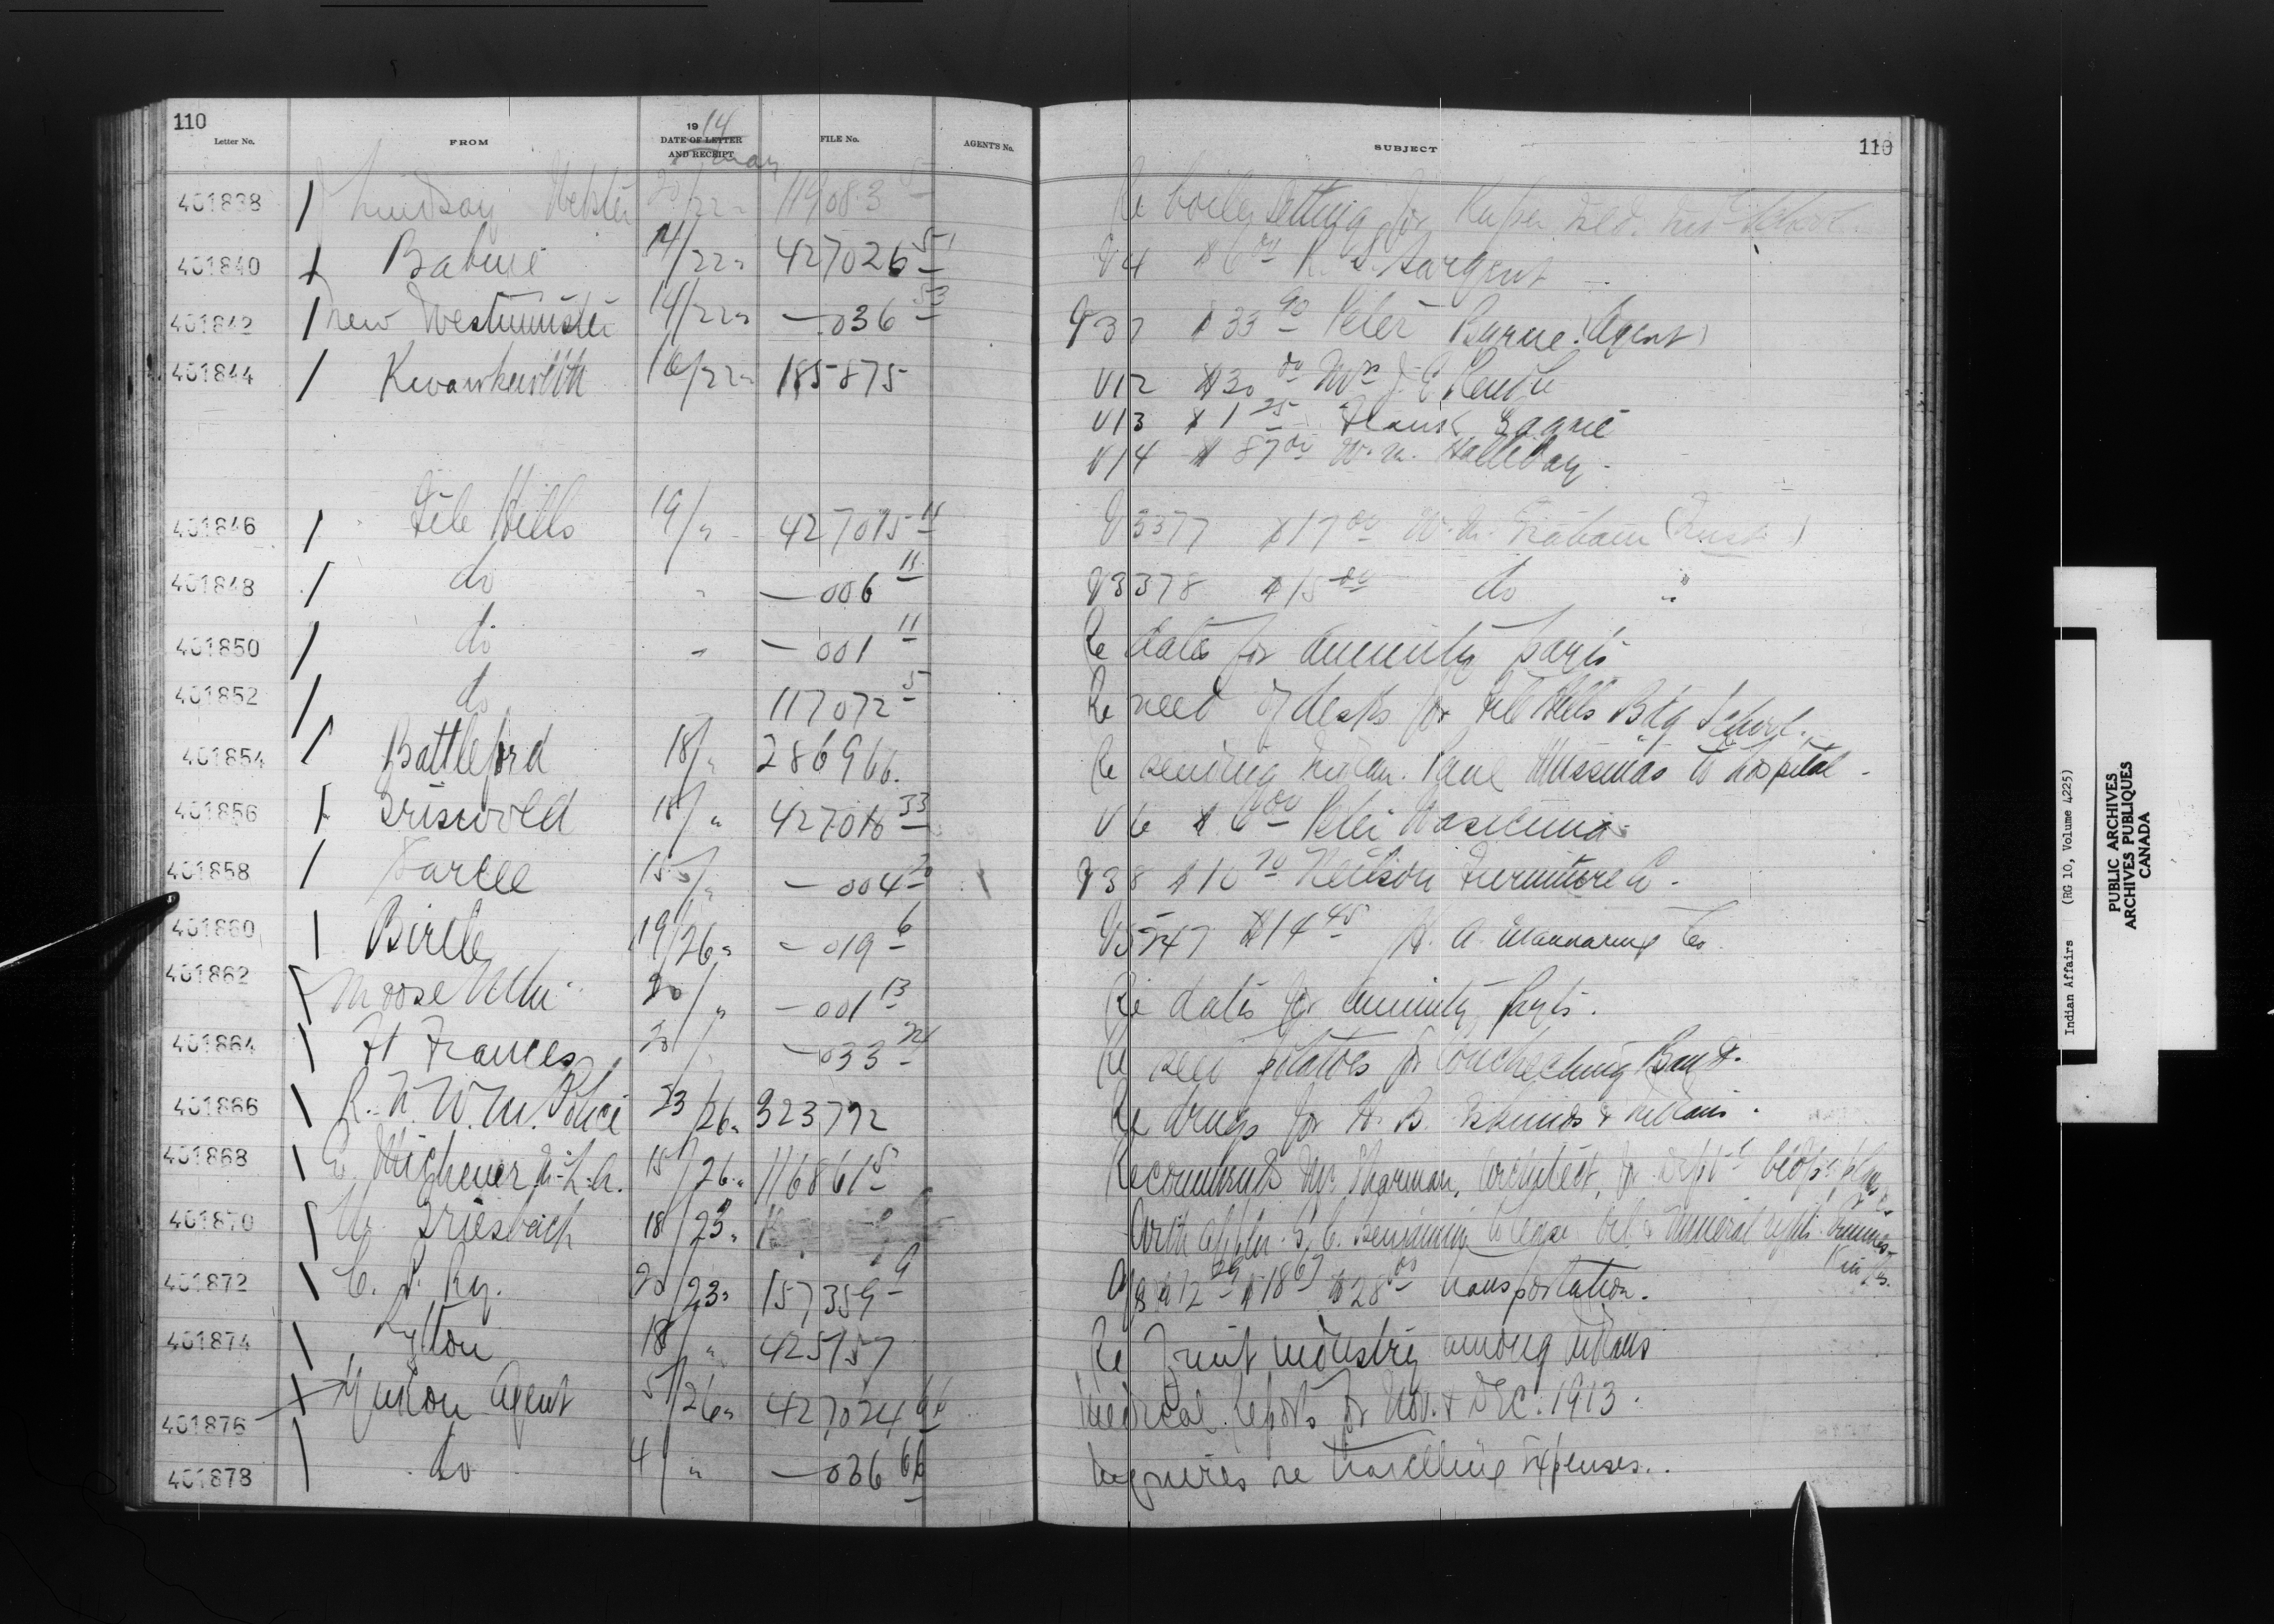 110
110
Letter No. FROM 1914 DATE OF LETTER AND RECEIPT FILE No. AGENT'S No. SUBJECT
May
401838 Lindsay 20/22 " 119083 5 Re boiler setting for School
401840 Babine 14/22 " 427026 51 V4 $6 00 R. S. Sargent
401842 New Westminster 14/22 " — 036 53 V37 $33 90 Peter Byrne (Agent)
401844 Kwawkewlth 16/22 " 185875 V12 $30 00 Mrs J. E.
V13 $1 25 Frank
V14 $87 00 W. M. Halliday
401846 File Hills 19/ " 427015 11 V3377 $17 00 W. M. Graham
401848 do " — 006 11 V3378 $15 00 do "
401850 do " — 001 11 Re dates for annuity payts
401852 do 117072 5 Re need of desks for File Hills Bdg School.
401854 Battleford 18/ " 286966 Re sending Indian Paul to hospital
401856 Griswold 18/ " 427016 33 V6 $6 00 Peter
401858 Sarcee 15/ " — 004 20 V38 $10 70 Neilson Furniture Co.
401860 Birtle 19/26 " — 019 6 V5747 $14 45 H. A. Manwaring Co.
401862 Moose Mtn 20/ " — 001 13 Re dates for annuity payts.
401864 Ft Frances 20/ " — 033 24 Re seed potatoes for Couchiching Band.
401866 R. N. W. M. Police 23/26 " 323792 Re drugs for H. B. Eskimos & Indians.
401868 E. Michener M.L.A. 15/26 " 116861 5 Recommends Mr Sharman, Architect, for Dept
401870 W. Griesbach 18/23 " With appln. S. C. Benjamin to lease Oil & Mineral rights
401872 C. P. Ry. 20/23 " 157359 9 $18 67 $28 00 transportation.
401874 Lytton 18/ " 425157 Re Fruit industry among Indians
401876 Yukon Agent 5/26 " 427024 66 Medical reports for Nov. & Dec. 1913.
401878 do 4/ " — 036 66 Inquires re travelling expenses.
Indian Affairs (RG 10, Volume 4225)
PUBLIC ARCHIVES
ARCHIVES PUBLIQUES
CANADA